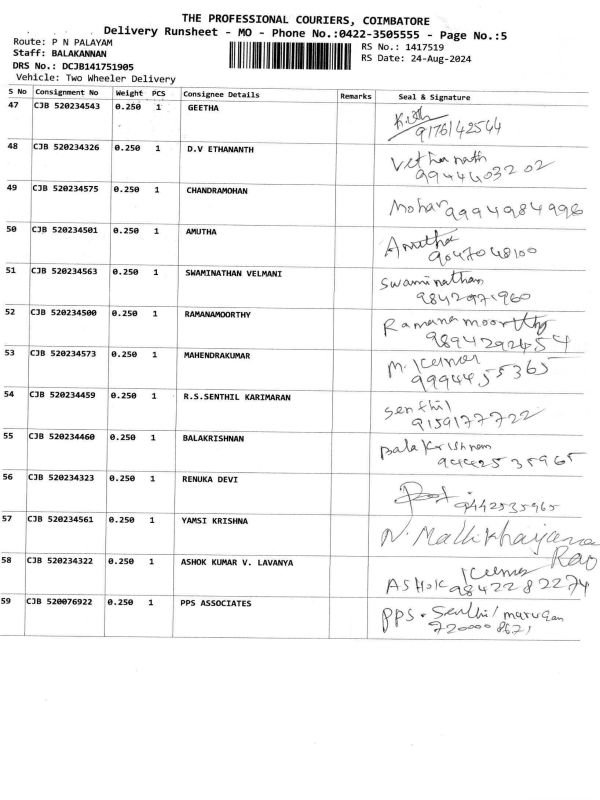 THE PROFESSIONAL COURIERS, COIMBATORE
Delivery Runsheet - MO - Phone No.:0422-3505555 - Page No.:5
Route: P N PALAYAM
RS No.: 1417519
Staff: BALAKANNAN
RS Date: 24-Aug-2024
DRS No.: DCJB141751905
Vehicle: Two Wheeler Delivery
S No Consignment No Weight PCS Consignee Details Remarks Seal & Signature
47 CJB 520234543 0.250 1 GEETHA
9176142544
48 CJB 520234326 0.250 1 D.V ETHANANTH
9944403202
49 CJB 520234575 0.250 1 CHANDRAMOHAN
Mohan 9994984996
50 CJB 520234501 0.250 1 AMUTHA
Amutha
9047048100
51 CJB 520234563 0.250 1 SWAMINATHAN VELMANI
Swaminathan
9842971960
52 CJB 520234500 0.250 1 RAMANAMOORTHY
Ramanamoorthy
9894292454
53 CJB 520234573 0.250 1 MAHENDRAKUMAR
M. Kumar
9994455365
54 CJB 520234459 0.250 1 R.S.SENTHIL KARIMARAN
Senthil
9159177722
55 CJB 520234460 0.250 1 BALAKRISHNAN
Balakrishnan
9442535965
56 CJB 520234323 0.250 1 RENUKA DEVI
9442535965
57 CJB 520234561 0.250 1 YAMSI KRISHNA
N. Mallikharjana
Rao
58 CJB 520234322 0.250 1 ASHOK KUMAR V. LAVANYA
Ashok Kumar
9842282274
59 CJB 520076922 0.250 1 PPS ASSOCIATES
PPS. Senthil murugan
7200008671